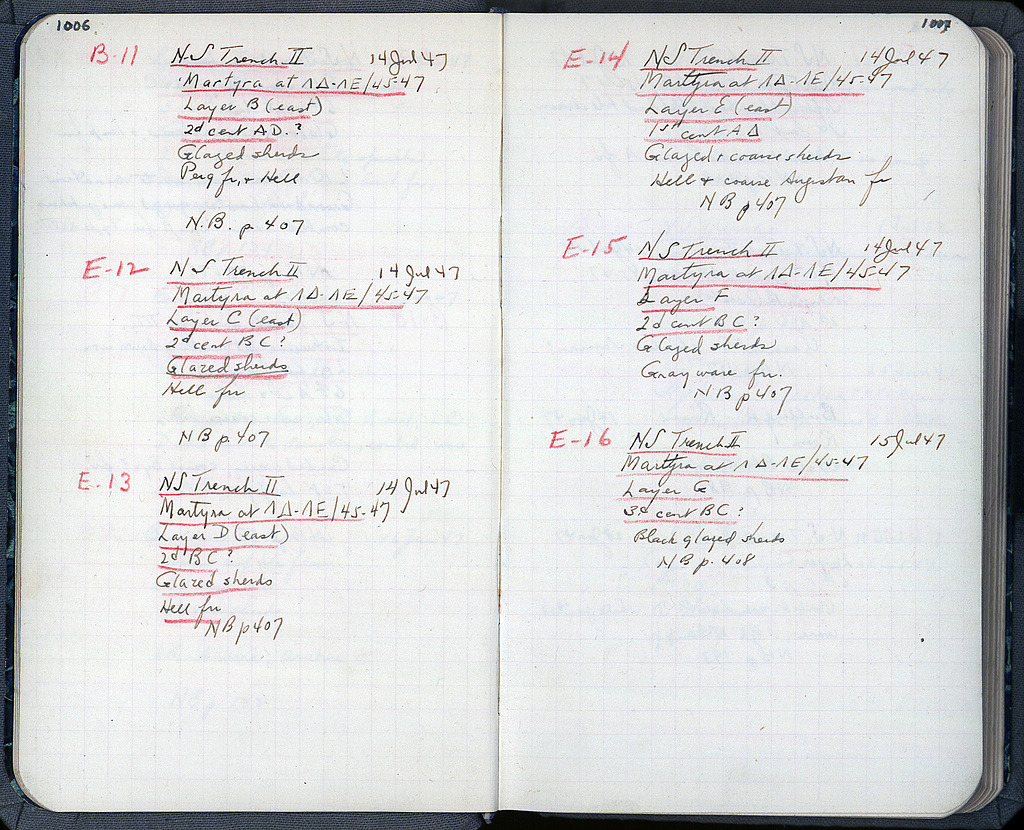 1006
B-11 N-S Trench II 14 Jul 47
Martyra at ΛΔ-ΛE/45-47
Layer B (east)
2d cent A.D.?
Glazed sherds
Perg fr, + Hell
N.B. p 407
E-12 N-S Trench II 14 Jul 47
Martyra at ΛΔ-ΛE/45-47
Layer C (east)
2d cent BC?
Glazed sherds
Hell fr
NB p. 407
E-13 NS Trench II 14 Jul 47
Martyra at ΛΔ-ΛE/45-47
Layer D (east)
2d BC?
Glazed sherds
Hell fr
NB p 407
1007
E-14 NS Trench II 14 Jul 47
Martyra at ΛΔ-ΛE/45-47
Layer E (east)
1st cent AD
Glazed + coarse sherds
Hell + coarse Augustan fr
NB p 407
E-15 NS Trench II 14 Jul 47
Martyra at ΛΔ-ΛE/45-47
Layer F
2d cent BC?
Glazed sherds
Gray ware fr.
NB p 407
E-16 NS Trench II 15 Jul 47
Martyra at ΛΔ-ΛE/45-47
Layer G
3d cent BC?
Black glazed sherds
NB p. 408